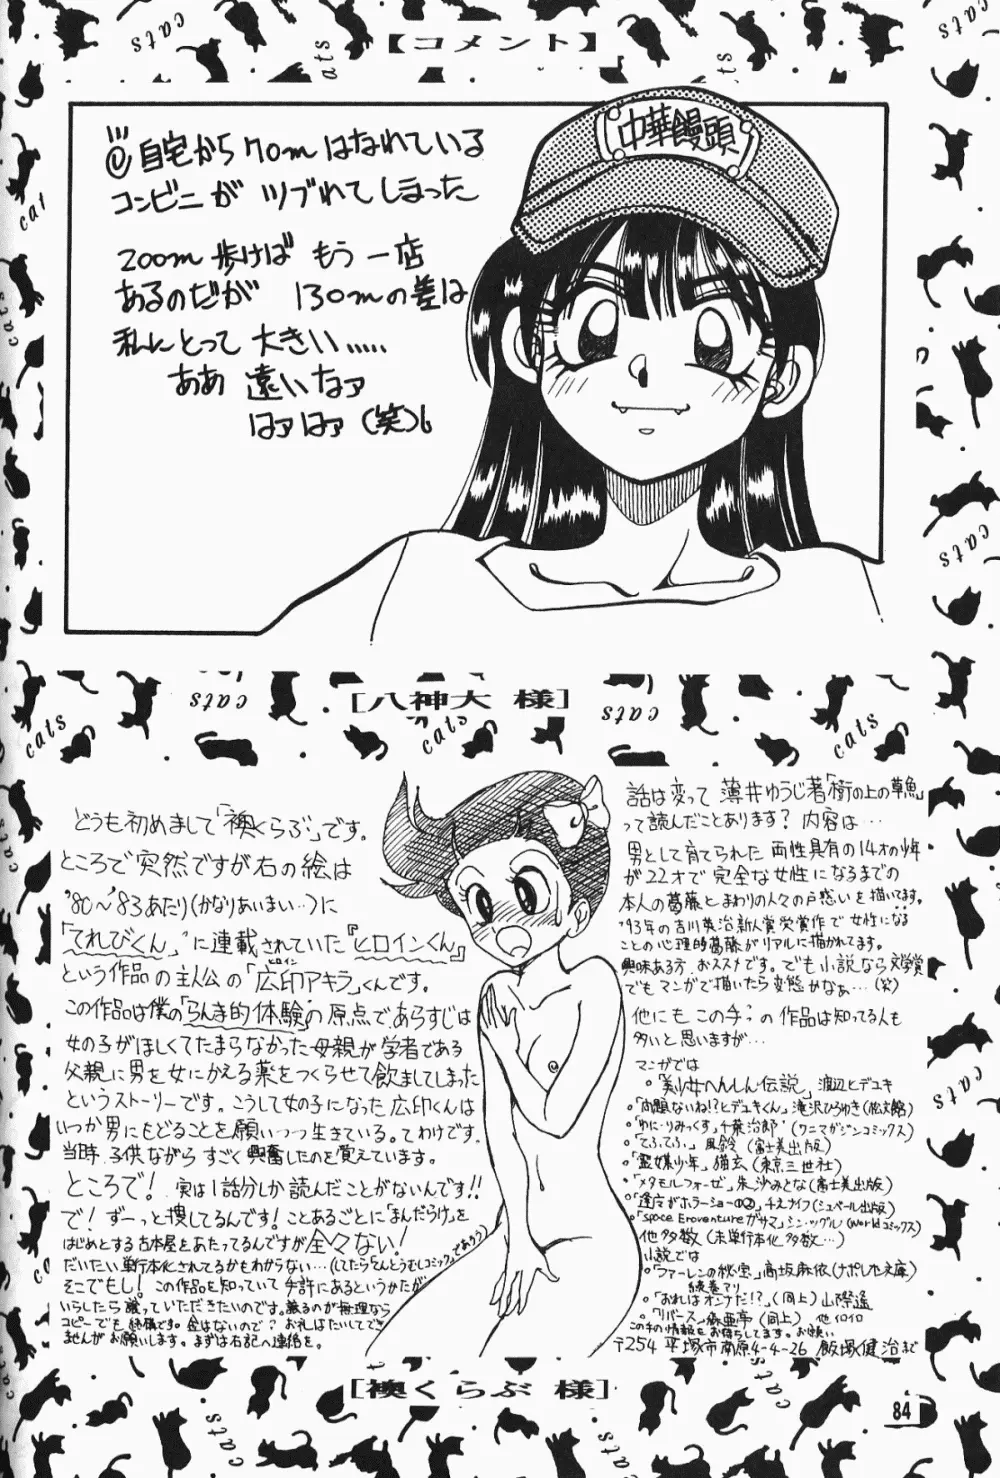 【コメント】
中華饅頭
自宅から70mはなれている
コンビニが ツブれてしまった
200m 歩けば もう一店
あるのだが 130mの差は
私にとって 大きい.....
ああ 遠いなァ
はァはァ(笑)
[八神大 様]
どうも初めまして「襖くらぶ」です。
ところで突然ですが右の絵は
'80〜'83あたり(かなりあいまい…)に
「てれびくん」に連載されていた『ヒロインくん』
という作品の主人公の「広印アキラ」くんです。
ヒロイン
この作品は僕の「らんま的体験」の原点で、あらすじは
女の子がほしくてたまらなかった母親が学者である
父親に男を女にかえる薬をつくらせて飲ましてしまった
というストーリーです。こうして女の子になった広印くんは
いつか男にもどることを願いつつ生きている。てわけです。
当時、子供ながらすごく興奮したのを覚えています。
ところで! 実は1話分しか読んだことがないんです!!
で! ずーっと捜してるんです! ことあるごとに「まんだらけ」を
はじめとする古本屋をあたってるんですが全々ない!
だいたい単行本化されてるかもわからない…(してたらてんとう虫コミックスであろう)
そこでもし! この作品を知っていて手許にあるというかたが
いらしたら譲っていただきたいのです。譲るのが無理なら
コピーでも結構です。金はないので? お礼はたいしてでき
ませんがお願いします。まずは右記へ連絡を。
話は変って 薄井ゆうじ著「樹の上の草魚」
って読んだことあります? 内容は…
男として育てられた 両性具有の14才の少年
が22才で 完全な女性になるまでの
本人の葛藤とまわりの人々の戸惑いを描いてます。
'93年の吉川英治新人賞受賞作で女性になる
ことの心理的葛藤がリアルに描かれてます。
興味ある方、おススメです。でも小説なら文学賞
でもマンガで描いたら変態かなぁ…(笑)
他にも この手っの作品は知ってる人も
多いと思いますが…
マンガでは
○「美少女へんしん伝説」渡辺ヒデユキ
○「問題ないね!?ヒデユキくん」滝沢ひろゆき(松文館)
○「わに・りみっくす」千葉治郎(ワニマガジンコミックス)
○「てふてふ」風鈴(富士美出版)
○「霊媒少年」猫玄(東京三世社)
○「メタモルフォーゼ」朱沙みとな(富士美出版)
○「逢度がホラーショー①②」チェナイフ(シュベール出版)
○「space Eroventureガサマ」シン・ツグル(worldコミックス)
他多数(未単行本化多数…)
小説では
○「ファーレンの秘宝」高坂麻依(ナポレオン文庫)
続巻アリ
○「おれはオンナだ!?」(同上)山際遥
○「リバース」森亜亭(同上) 他イロイロ
この手の情報をお待ちしてます。お願い
〒254 平塚市南原4-4-26 飯塚健治まで
[襖くらぶ 様]
84
cats